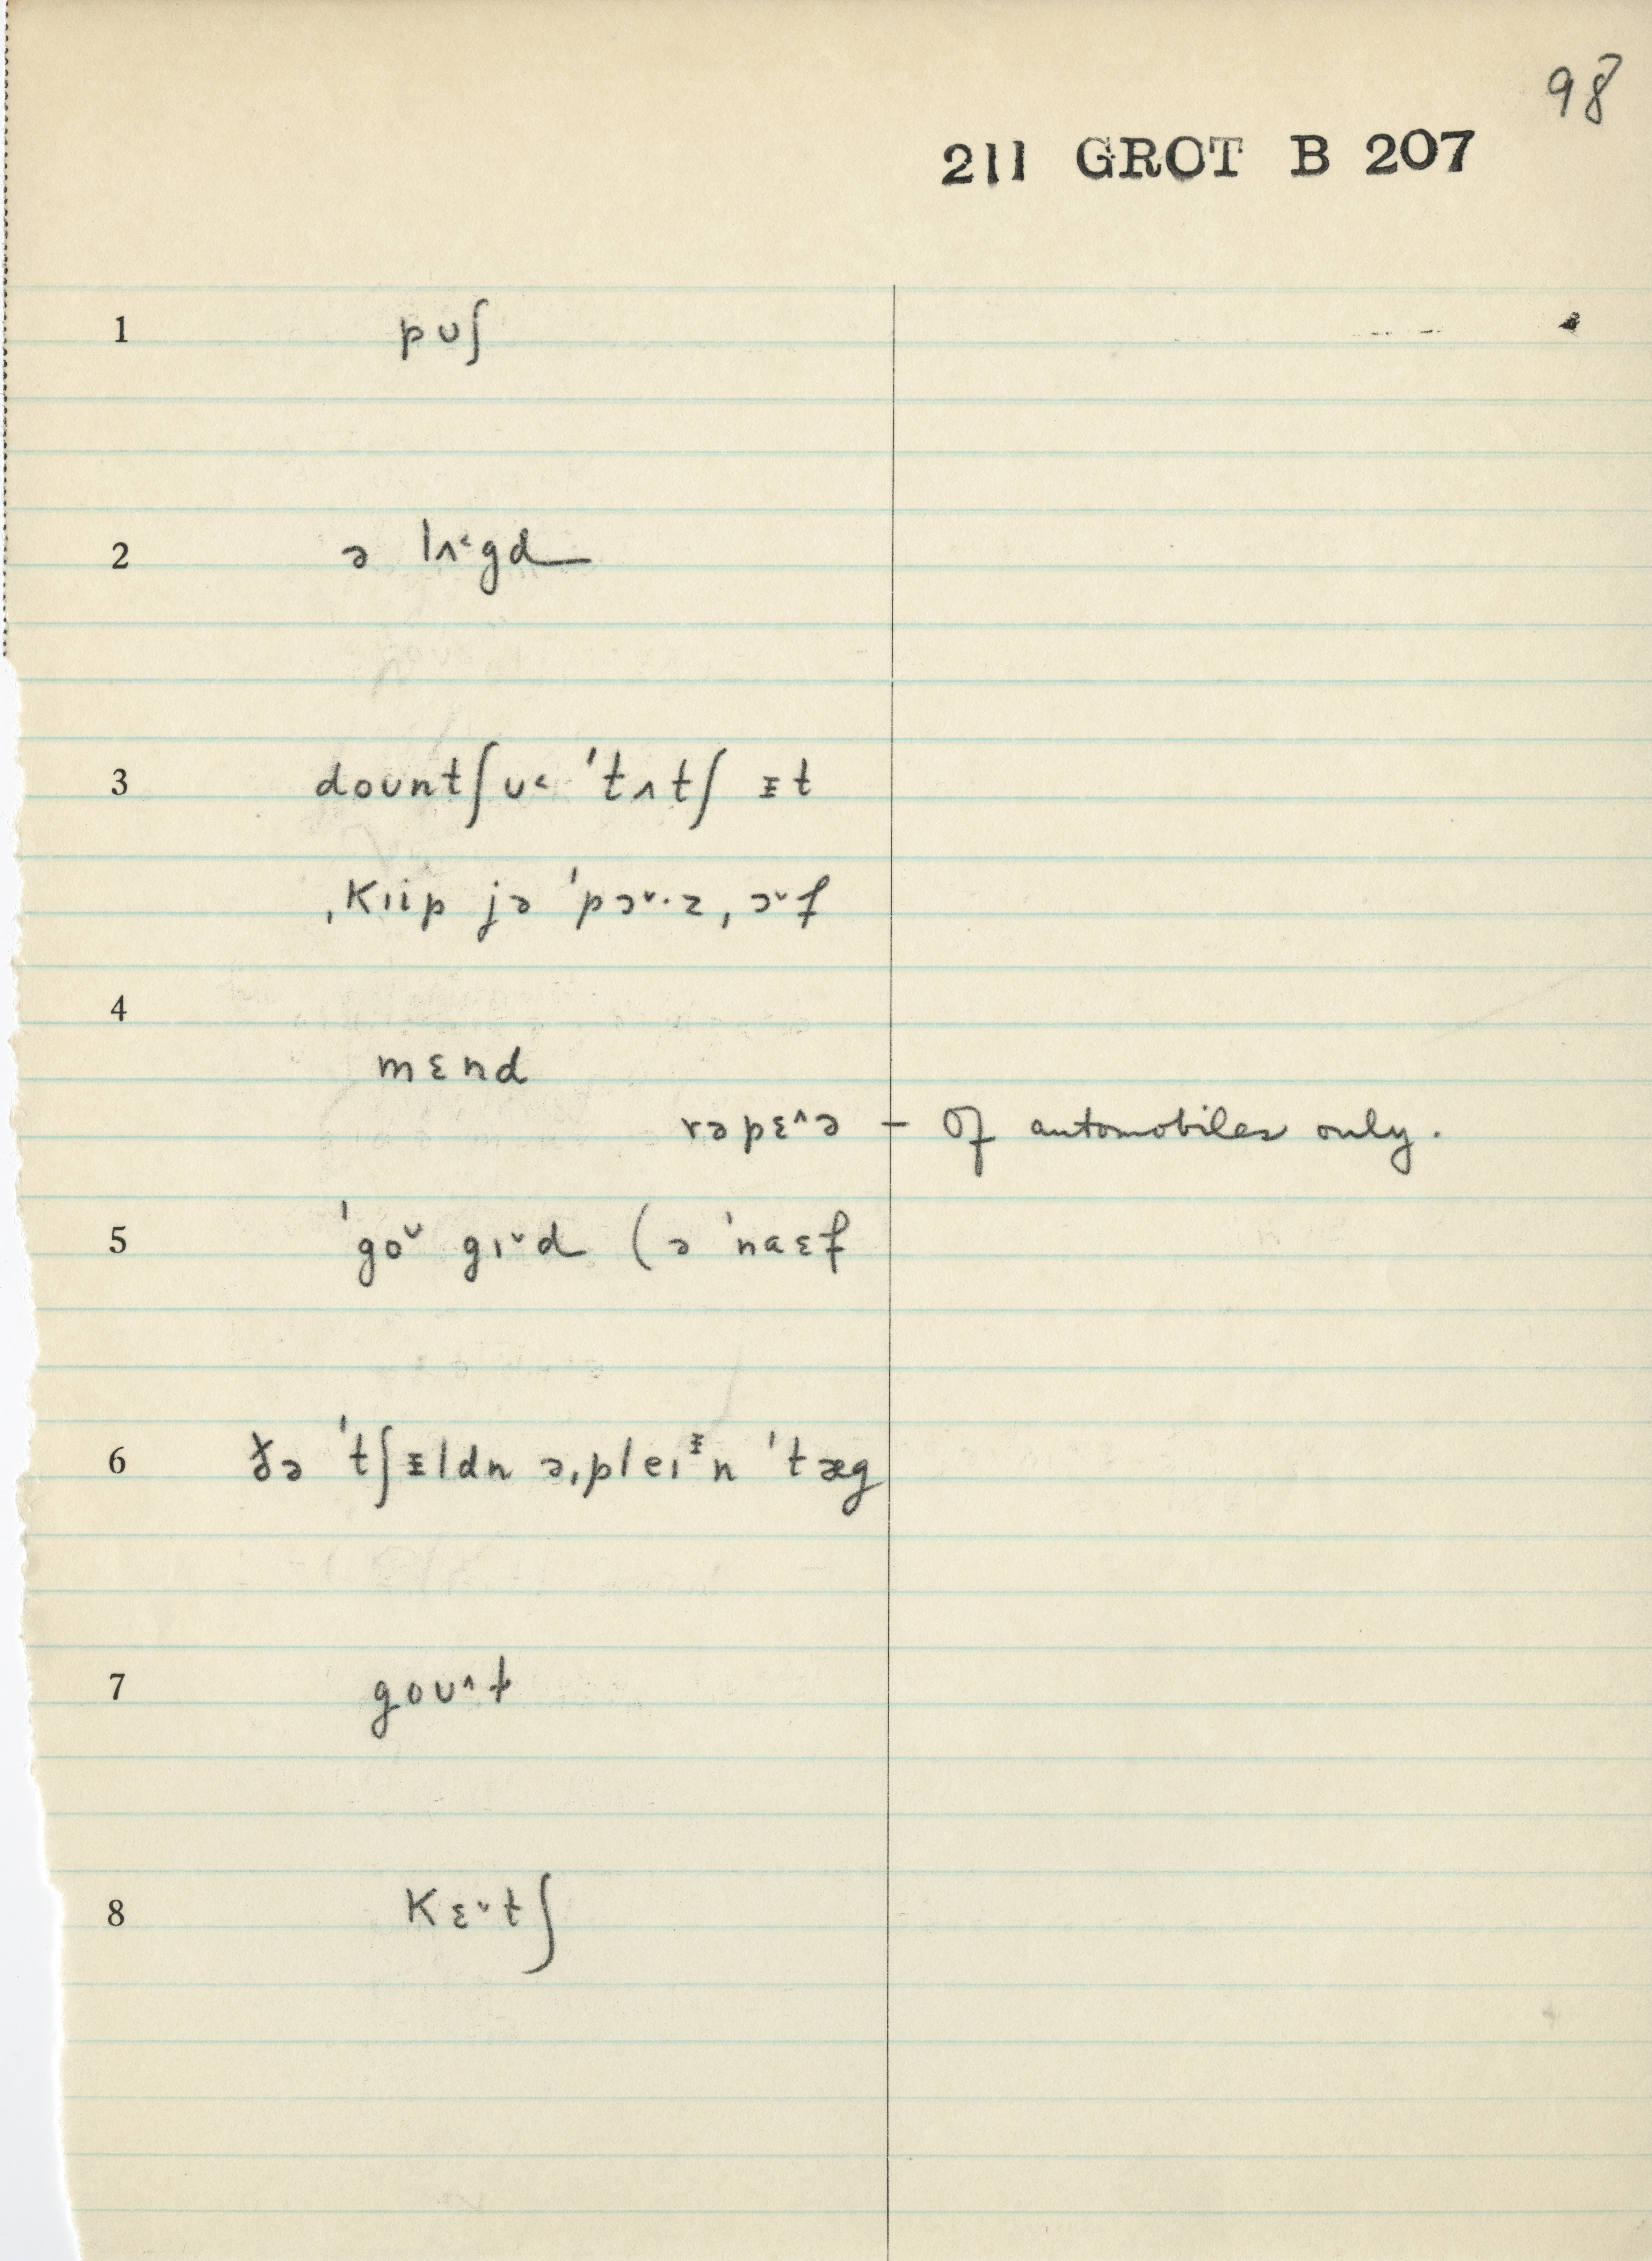 98
211 GROT B 207
1 pʊʃ
2 ə lʌ˂gd
3 doʊntʃʊ˂ 'tʌtʃ ᵻt
ˌkɪip jə 'pɔ˅·zˌɔ˅f
4
mɛnd
rəpɛ˄ə – Of automobiles only.
5 'go˅ gɪ˅d (ə 'naɛf
6 ðə 'tʃᵻldn əˌpleɪᵻn 'tæg
7 goʊ˄t
8 kɛ˅tʃ